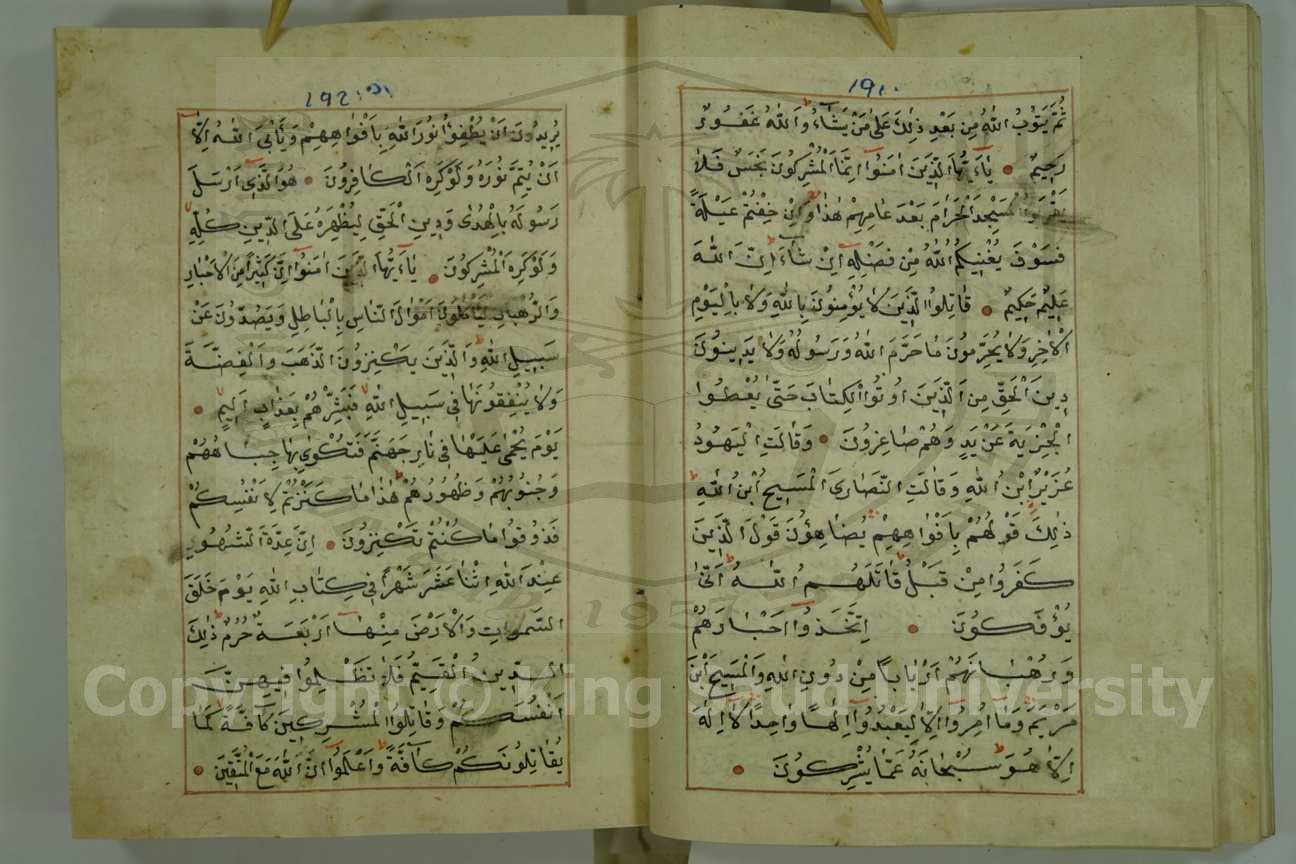 ١٩١
ثُمَّ يَتُوبُ اللّٰهُ مِن بَعْدِ ذٰلِكَ عَلٰى مَنْ يَشَٓاءُ وَاللّٰهُ غَفُورٌ
رَحِيمٌ ۝ يَٓا اَيُّهَا الَّذِينَ اٰمَنُٓوا اِنَّمَا الْمُشْرِكُونَ نَجَسٌ فَلَا
يَقْرَبُوا الْمَسْجِدَ الْحَرَامَ بَعْدَ عَامِهِمْ هٰذَا وَاِنْ خِفْتُمْ عَيْلَةً
فَسَوْفَ يُغْنِيكُمُ اللّٰهُ مِن فَضْلِهِٓ اِنْ شَٓاءَ اِنَّ اللّٰهَ
عَلِيمٌ حَكِيمٌ ۝ قَاتِلُوا الَّذِينَ لَا يُؤْمِنُونَ بِاللّٰهِ وَلَا بِالْيَوْمِ
الْاٰخِرِ وَلَا يُحَرِّمُونَ مَا حَرَّمَ اللّٰهُ وَرَسُولُهُ وَلَا يَدِينُونَ
دِينَ الْحَقِّ مِنَ الَّذِينَ اُوتُوا الْكِتَابَ حَتّٰى يُعْطُوا
الْجِزْيَةَ عَنْ يَدٍ وَهُمْ صَاغِرُونَ ۝ وَقَالَتِ الْيَهُودُ
عُزَيْرٌ ابْنُ اللّٰهِ وَقَالَتِ النَّصَارَى الْمَسِيحُ ابْنُ اللّٰهِ ط
ذٰلِكَ قَوْلُهُمْ بِاَفْوَاهِهِمْ يُضَاهِؤُنَ قَوْلَ الَّذِينَ
كَفَرُوا مِنْ قَبْلُ قَاتَلَهُمُ اللّٰهُ اَنّٰى
يُؤْفَكُونَ ۝ اِتَّخَذُٓوا اَحْبَارَهُمْ
وَرُهْبَانَهُمْ اَرْبَابًا مِنْ دُونِ اللّٰهِ وَالْمَسِيحَ ابْنَ
مَرْيَمَ وَمَٓا اُمِرُٓوا اِلَّا لِيَعْبُدُٓوا اِلٰهًا وَاحِدًا لَٓا اِلٰهَ
اِلَّا هُوَ سُبْحَانَهُ عَمَّا يُشْرِكُونَ ۝
١٩٢
يُرِيدُونَ اَنْ يُطْفِؤُا نُورَ اللّٰهِ بِاَفْوَاهِهِمْ وَيَاْبَى اللّٰهُ اِلَّٓا
اَنْ يُتِمَّ نُورَهُ وَلَوْ كَرِهَ الْكَافِرُونَ ۝ هُوَ الَّذِٓي اَرْسَلَ
رَسُولَهُ بِالْهُدٰى وَدِينِ الْحَقِّ لِيُظْهِرَهُ عَلَى الدِّينِ كُلِّهِ
وَلَوْ كَرِهَ الْمُشْرِكُونَ ۝ يَٓا اَيُّهَا الَّذِينَ اٰمَنُٓوا اِنَّ كَثِيرًا مِنَ الْاَحْبَارِ
وَالرُّهْبَانِ لَيَاْكُلُونَ اَمْوَالَ النَّاسِ بِالْبَاطِلِ وَيَصُدُّونَ عَنْ
سَبِيلِ اللّٰهِ ط وَالَّذِينَ يَكْنِزُونَ الذَّهَبَ وَالْفِضَّةَ
وَلَا يُنْفِقُونَهَا فِي سَبِيلِ اللّٰهِ فَبَشِّرْهُمْ بِعَذَابٍ اَلِيمٍ ۝
يَوْمَ يُحْمٰى عَلَيْهَا فِي نَارِ جَهَنَّمَ فَتُكْوٰى بِهَا جِبَاهُهُمْ
وَجُنُوبُهُمْ وَظُهُورُهُمْ ط هٰذَا مَا كَنَزْتُمْ لِاَنْفُسِكُمْ
فَذُوقُوا مَا كُنْتُمْ تَكْنِزُونَ ۝ اِنَّ عِدَّةَ الشُّهُورِ
عِنْدَ اللّٰهِ اثْنَا عَشَرَ شَهْرًا فِي كِتَابِ اللّٰهِ يَوْمَ خَلَقَ
السَّمٰوَاتِ وَالْاَرْضَ مِنْهَٓا اَرْبَعَةٌ حُرُمٌ ط ذٰلِكَ
الدِّينُ الْقَيِّمُ فَلَا تَظْلِمُوا فِيهِنَّ
اَنْفُسَكُمْ وَقَاتِلُوا الْمُشْرِكِينَ كَٓافَّةً كَمَا
يُقَاتِلُونَكُمْ كَٓافَّةً ط وَاعْلَمُٓوا اَنَّ اللّٰهَ مَعَ الْمُتَّقِينَ ۝
Copyright © King Saud University
1957